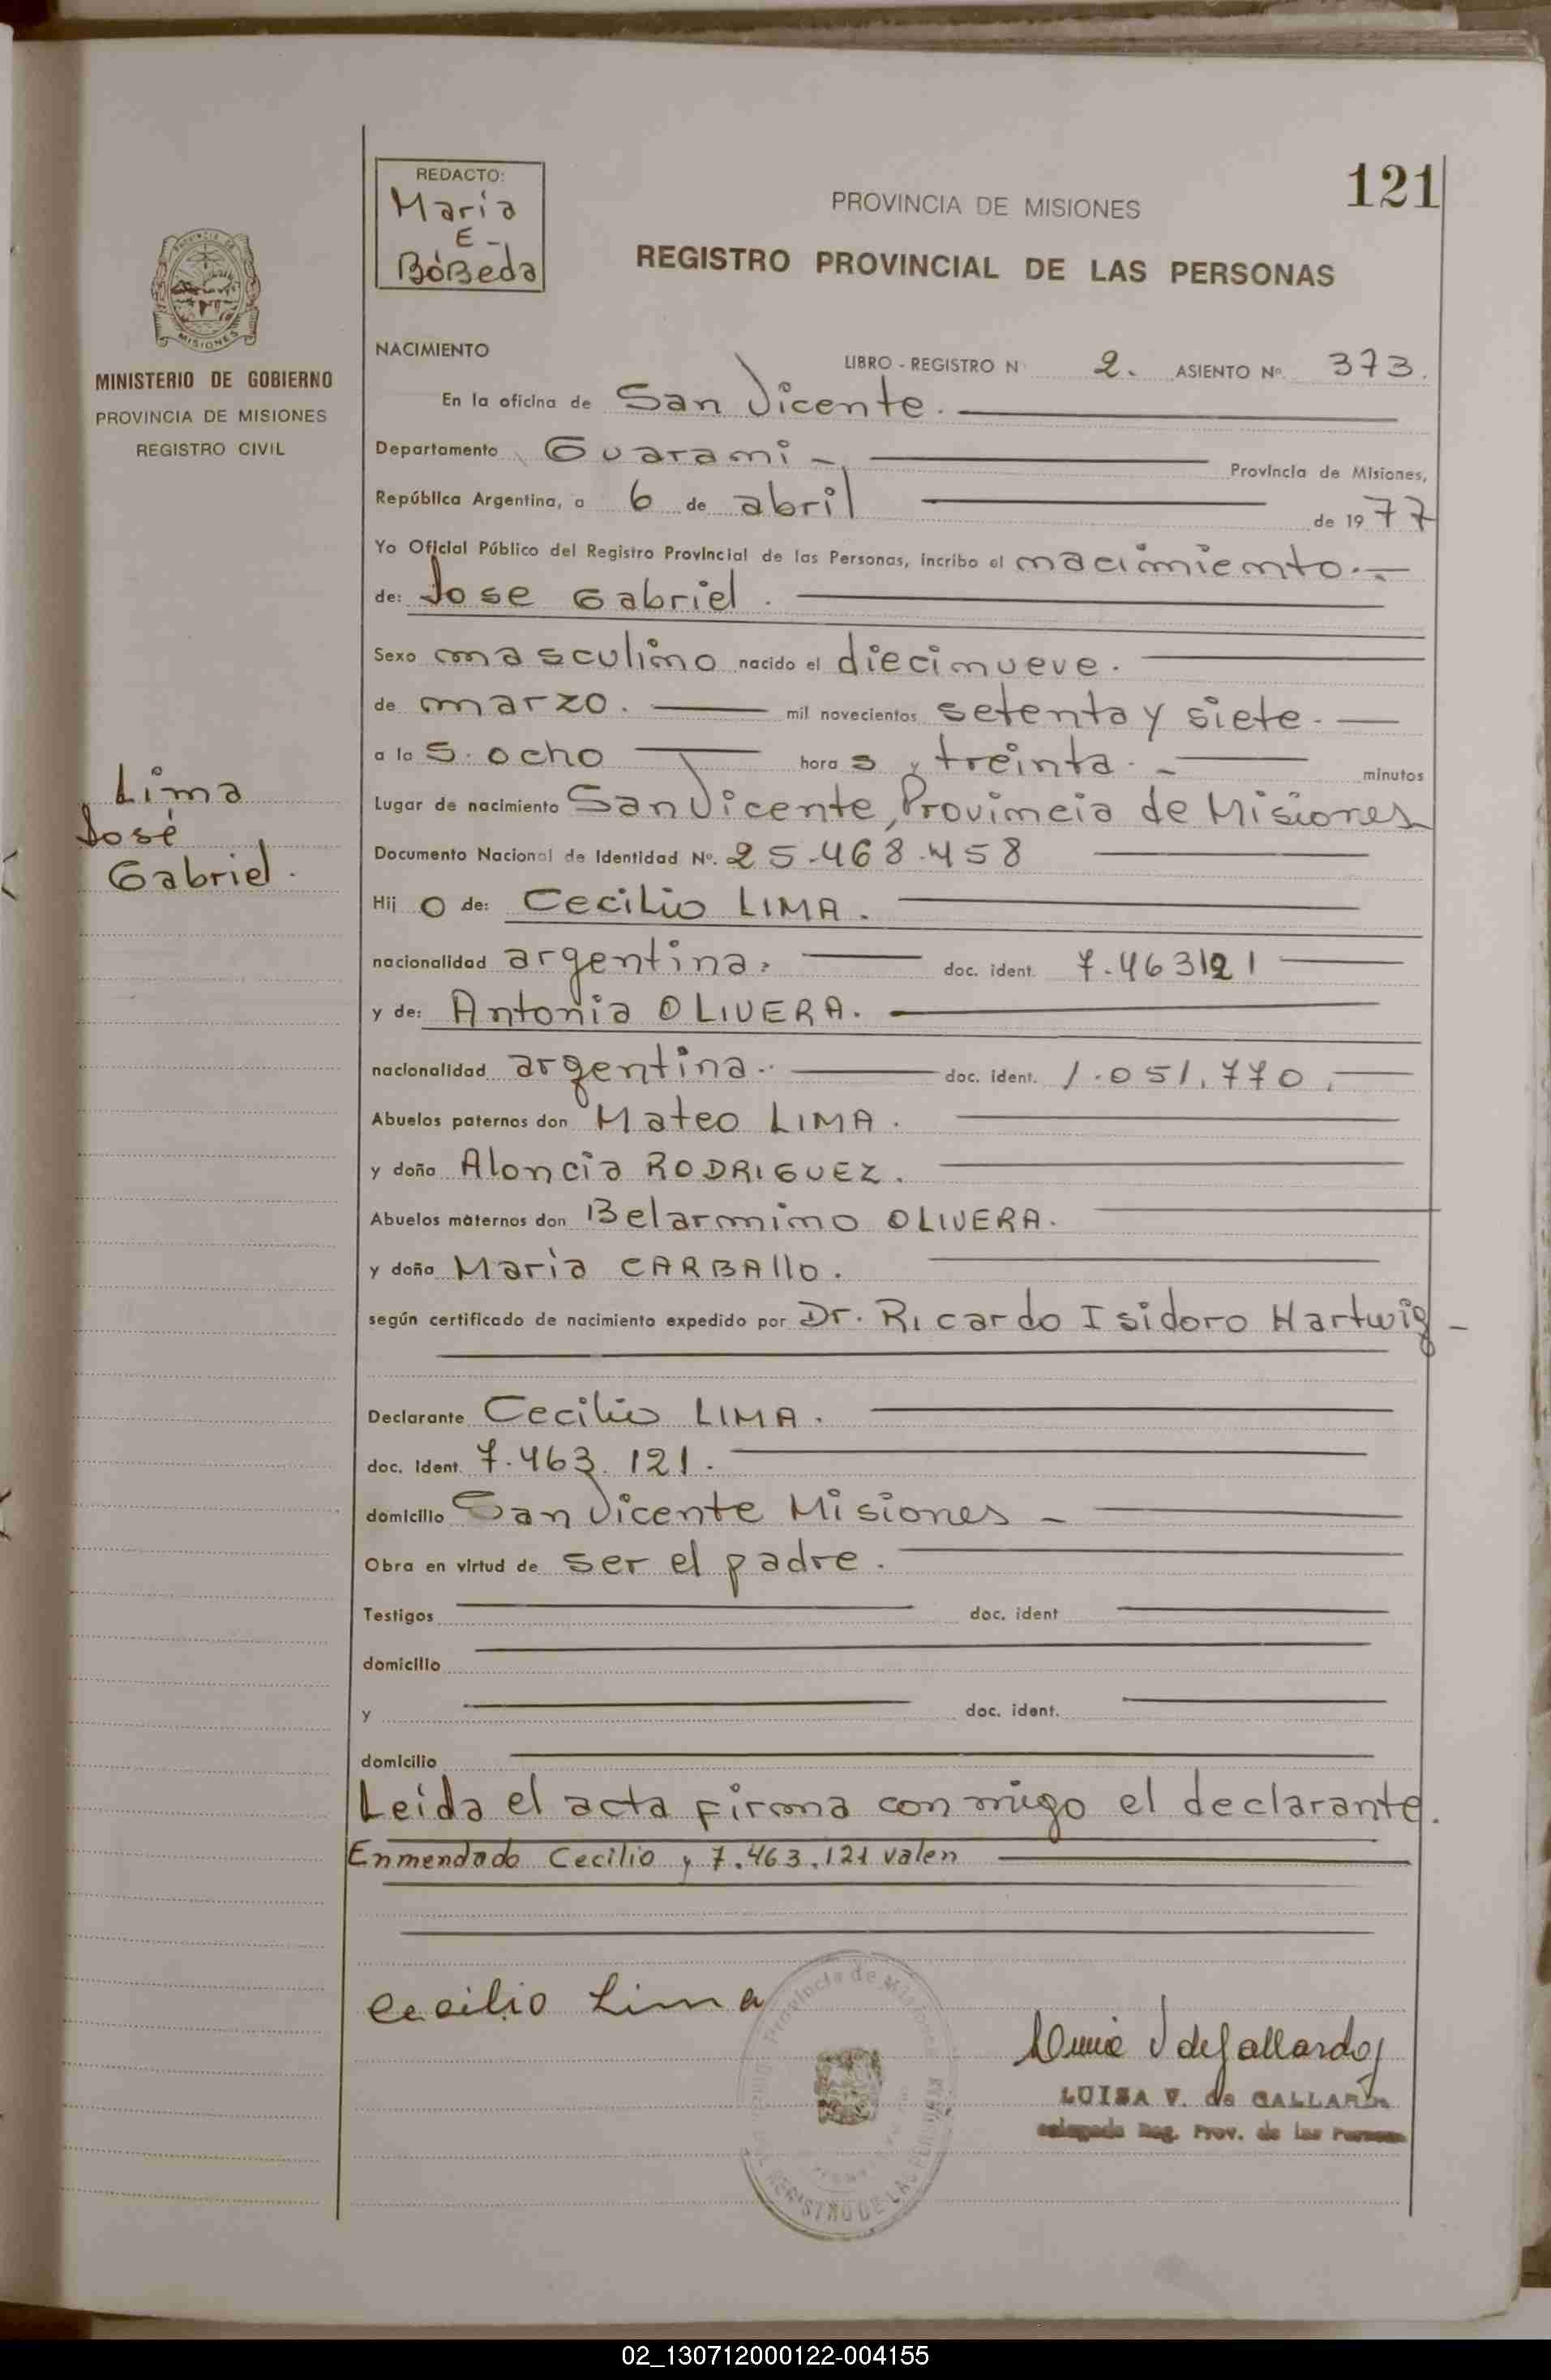 121
REDACTO:
Maria
E -
BóBeda
PROVINCIA DE MISIONES
REGISTRO PROVINCIAL DE LAS PERSONAS
MISIONES
MINISTERIO DE GOBIERNO
PROVINCIA DE MISIONES
REGISTRO CIVIL
Lima
José
Gabriel.
NACIMIENTO
LIBRO - REGISTRO N 2. ASIENTO Nº. 373.
En la oficina de San Vicente.
Departamento Guarami - Provincia de Misiones,
República Argentina, a 6 de abril de 1977
Yo Oficial Público del Registro Provincial de las Personas, incribo el macimiento.-
de: Jose Gabriel.
Sexo masculimo nacido el diecimueve.
de marzo. mil novecientos setenta y siete.
a las. ocho horas y treinta. - minutos
Lugar de nacimiento San Vicente, Provimcia de Misiones
Documento Nacional de Identidad Nº. 25.468.458
Hij o de: Cecilio LIMA.
nacionalidad argentina. doc. ident. 7.463121
y de: Antonia OLIVERA.
nacionalidad argentina.. doc. ident. 1.051.770.
Abuelos paternos don Mateo LIMA.
y doña Aloncia RODRIGUEZ.
Abuelos maternos don Belarmimo OLIVERA.
y doña Maria CARBAllO.
según certificado de nacimiento expedido por Dr. Ricardo Isidoro Hartwig -
Declarante Cecilio LIMA.
doc. Ident. 7.463.121.
domicilio San Vicente Misiones -
Obra en virtud de ser el padre.
Testigos doc. ident
domicilio
y doc. ident.
domicilio
Leida el acta firma con migo el declarante.
Enmendado Cecilio y 7.463.121 valen
Cecilio Lima
Provincia de Misiones
REGISTRO DE LAS PERSONAS
V de Gallardo
LUISA V. de GALLARDO
Reg. Prov. de las Personas
02_130712000122-004155